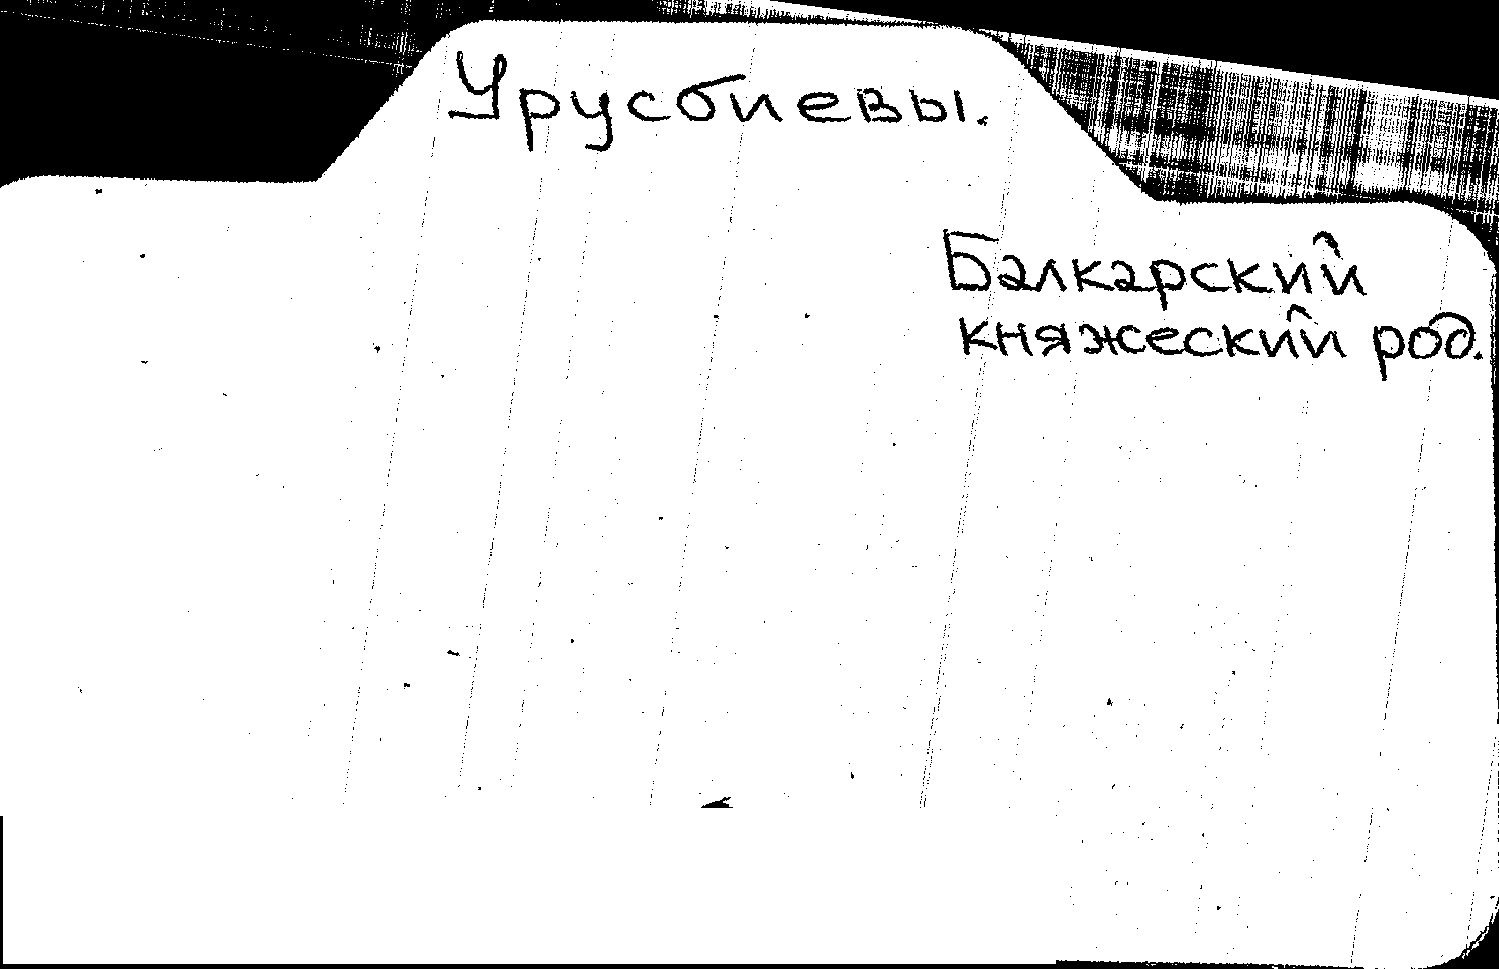 Урусбиевы.
Балкарский
княжеский род.